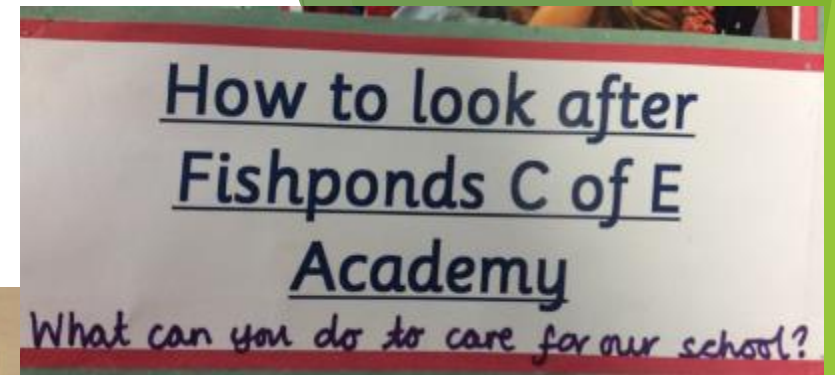 How to look after
Fishponds C of E
Academy
What can you do to care for our school?